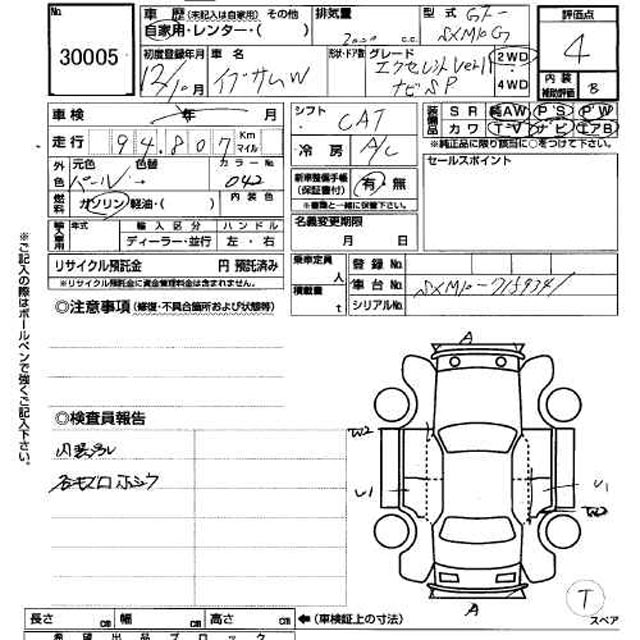 No. 30005
車歴(未記入は自家用) その他
自家用・レンター・( )
排気量 2000 c.c.
型式 GF-SXM10G
評価点 4
初度登録年月 12/10月
車名 イプサムW
形状・ドア数
グレード エクセレントVer II ナビSP
2WD
4WD
内装補助評価 B
車検 年 月
シフト CAT
装備品 SR 純AW P'S P'W
カワ T・V ナビ エアB
※純正品に限り該当に○をつけて下さい。
走行 94,807 Km マイル
冷房 A/C
セールスポイント
外色 元色 パール 色替 → カラーNo. 042
新車整備手帳(保証書付) 有・無
※書類と一緒に保管下さい。
燃料 ガソリン・軽油・( ) 内装色
名義変更期限
月 日
輸入車用 年式 輸入区分 ハンドル
ディーラー・並行 左・右
リサイクル預託金 円 預託済み
※リサイクル預託金に資金管理料金は含まれません。
乗車定員 人
登録No.
積載量 t
車台No. SXM10-7159341
シリアルNo.
◎注意事項(修復・不具合箇所および状態等)
※ご記入の際はボールペンで強くご記入下さい。
◎検査員報告
A
W2
U1
U1
W2
A
T
スペア
長さ cm 幅 cm 高さ cm
←(車検証上の寸法)
希望出品ブロック